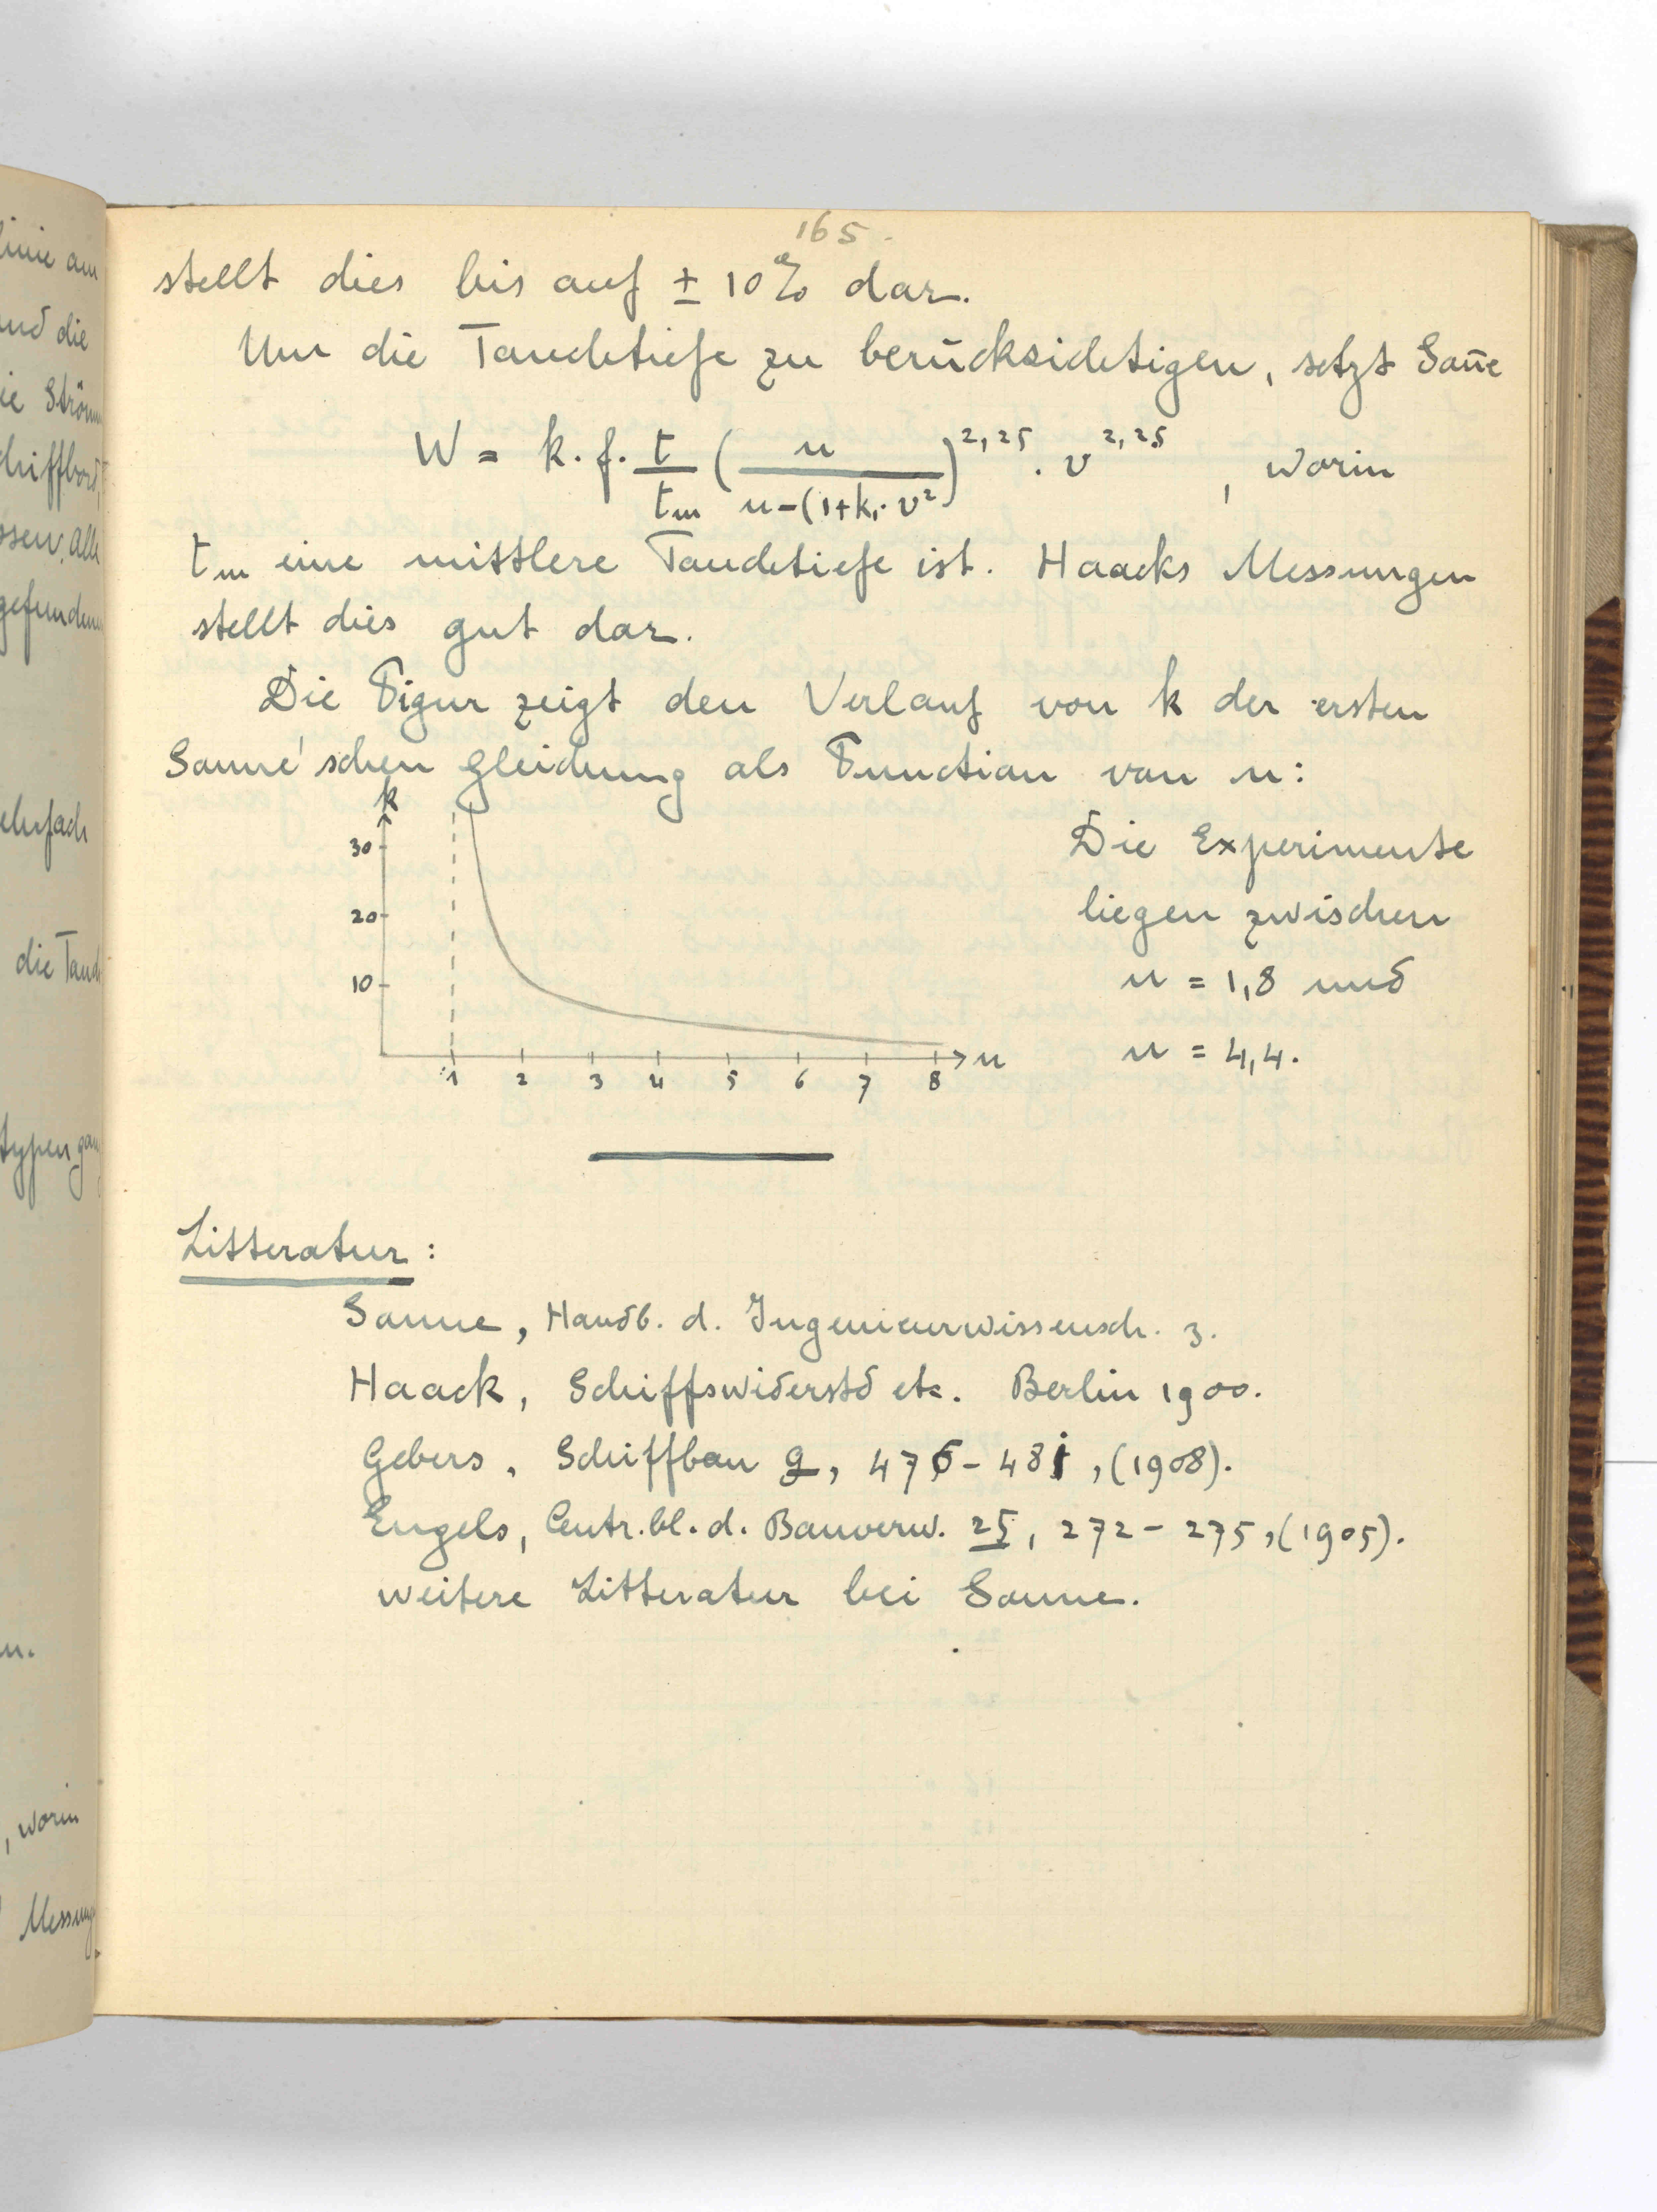 165.
stellt dies bis auf ± 10% dar.
Um die Tauchtiefe zu berücksichtigen, setzt Soñe
W = k . f . t/t_m ( n / n-(1+k₁· v² )^2,25 . v^2,25 , worin
t_m eine mittlere Tauchtiefe ist. Haacks Messungen
stellt dies gut dar.
Die Figur zeigt den Verlauf von k der ersten
Sonne'schen Gleichung als Function von n:
k
30
20
10
1 2 3 4 5 6 7 8 n
Die Experimente
liegen zwischen
n = 1,8 und
n = 4,4.
Litteratur:
Sonne, Handb. d. Ingenieurwissensch. 3.
Haack, Schiffswiderstd etc. Berlin 1900.
Gebers, Schiffbau 9, 476-481, (1908).
Engels, Centr.bl. d. Bauverw. 25, 272-275, (1905).
weitere Litteratur bei Sonne.
linie am
und die
gefunden
die Tauch
typen
, worin
Messung